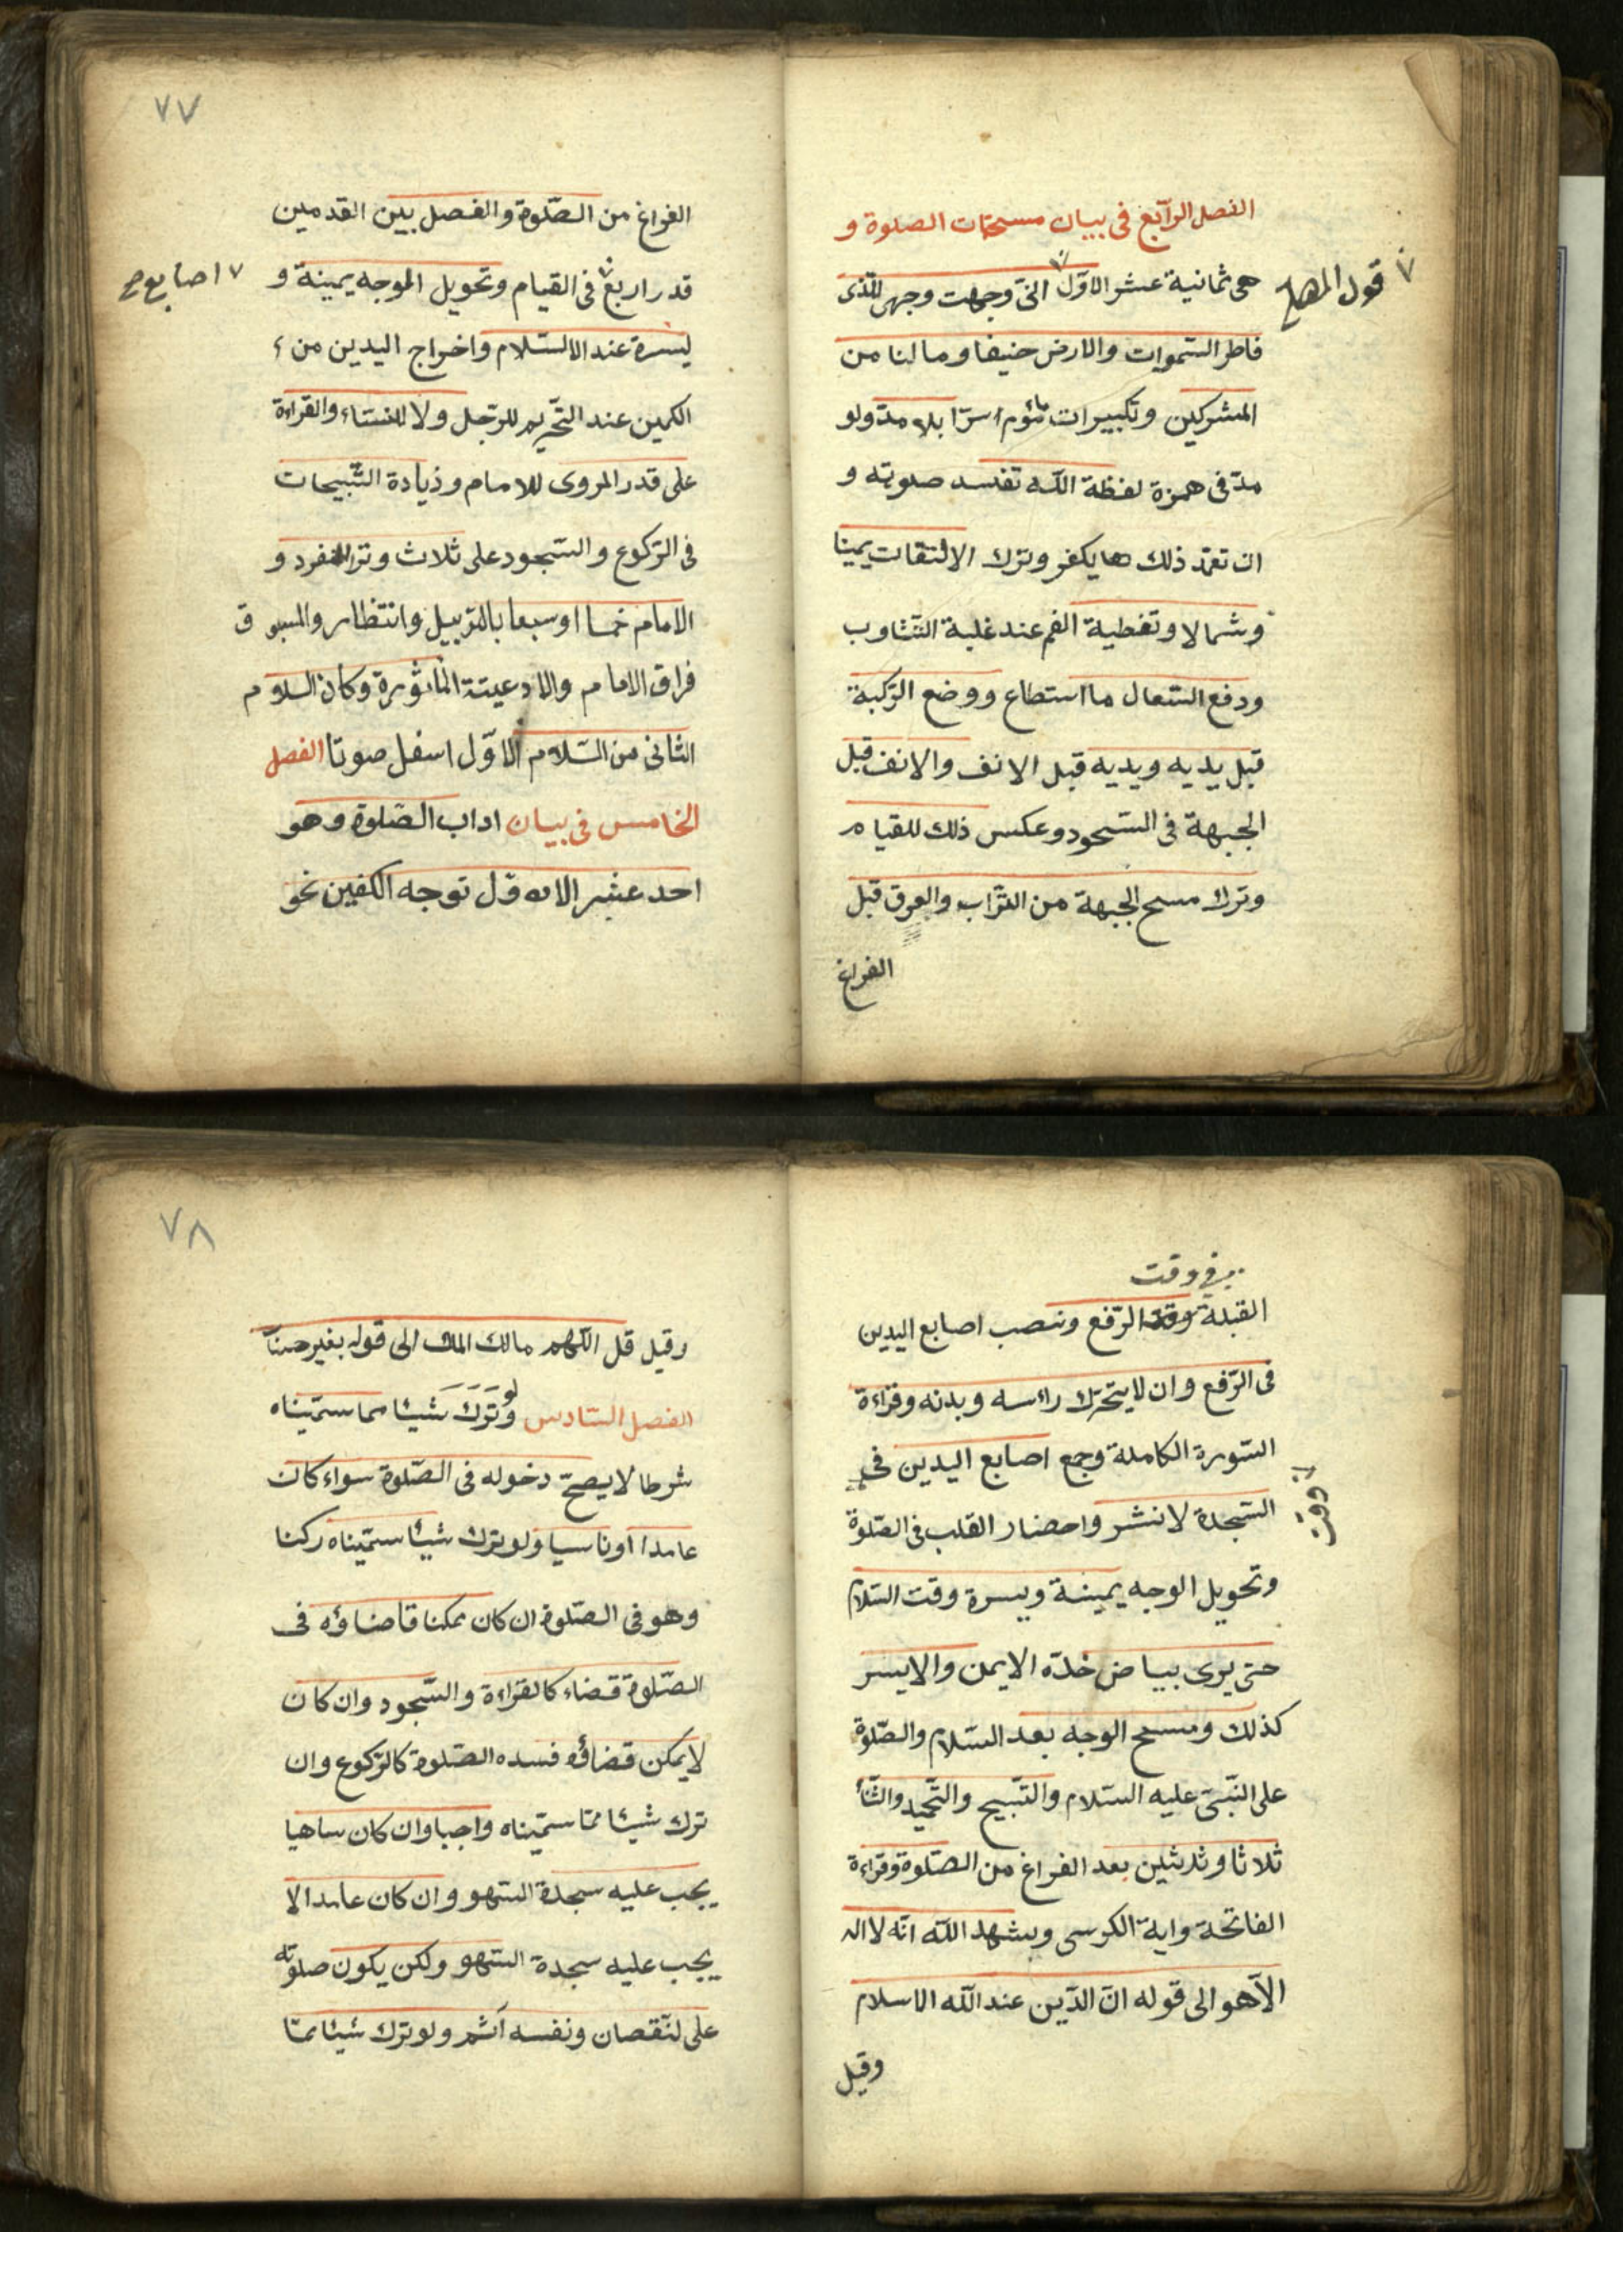 الفصل الرابع فى بيان مستحبات الصلوة و
هى ثمانية عشر الاوّل انّى وجهت وجهى للّذى
قول المصلى
فاطر السّموات والارض حنيفا وما انا من
المشركين وتكبيرات مأموم سرّا بلا مدّ ولو
مدّ فى همزة لفظة اللّه تفسد صلوته و
ان تعمّد ذلك يكفر وترك الالتفات يمينا
وشمالا وتغطية الفم عند غلبة التّثاوب
ودفع السّعال ما استطاع ووضع الرّكبة
قبل يديه ويديه قبل الانف والانف قبل
الجبهة فى السّجود وعكس ذلك للقيام
وترك مسح الجبهة من التّراب والعرق قبل
الفراغ
٧٧
الفراغ من الصّلوة والفصل بين القدمين
قدر اربع فى القيام وتحويل الوجه يمينة و
اصابع صح
يسرة عند السّلام واخراج اليدين من
الكمين عند التّحريم للرّجل ولا للنساء والقراءة
على قدر المروى للامام وزيادة التّسبيحات
فى الرّكوع والسّجود على ثلاث وترا للمنفرد و
الامام خمسا او سبعا بالترتيل وانتظار والمسبوق
فراق الامام والادعيتة المأثورة وكان السلام
الثانى من السّلام الاوّل اسفل صوتا الفصل
الخامس فى بيان اداب الصّلوة وهو
احد عشر الاوّل توجه الكفين نحو
فى وقت
القبلة وقت الرّفع ونصب اصابع اليدين
فى الرّفع وان لا يتحرّك رائسه وبدنه وقراءة
السّورة الكاملة وجمع اصابع اليدين فى
وقت
السّجدة لا نشر واحضار القلب فى الصّلوة
وتحويل الوجه يمينة ويسرة وقت السّلام
حتى يرى بياض خدّه الايمن والايسر
كذلك ومسح الوجه بعد السّلام والصّلوة
على النّبىّ عليه السّلام والتّسبيح والتّحميد والثّنأ
ثلاثا وثلثين بعد الفراغ من الصّلوة وقراءة
الفاتحة واية الكرسى وشهد اللّه انّه لا اله
الّا هو الى قوله انّ الدّين عند اللّه الاسلام
وقيل
٧٨
وقيل قل اللّهم مالك الملك الى قوله بغير حساب
الفصل السّادس ولو ترك شيئا مما سمّيناه
شرطا لا يصحّ دخوله فى الصّلوة سواء كان
عامدا او ناسيا ولو ترك شيئا سمّيناه ركنا
وهو فى الصّلوة ان كان ممكنا قاضاؤه فى
الصّلوة قضاء كالقراءة والسّجود وان كان
لا يمكن قضاؤه فسده الصّلوة كالرّكوع وان
ترك شيئا ممّا سمّيناه واجبا وان كان ساهيا
يجب عليه سجدة السّهو وان كان عامدا لا
يجب عليه سجدة السّهو ولكن يكون صلوته
على لنّقصان ونفسه آثم ولو ترك شيئا ممّا